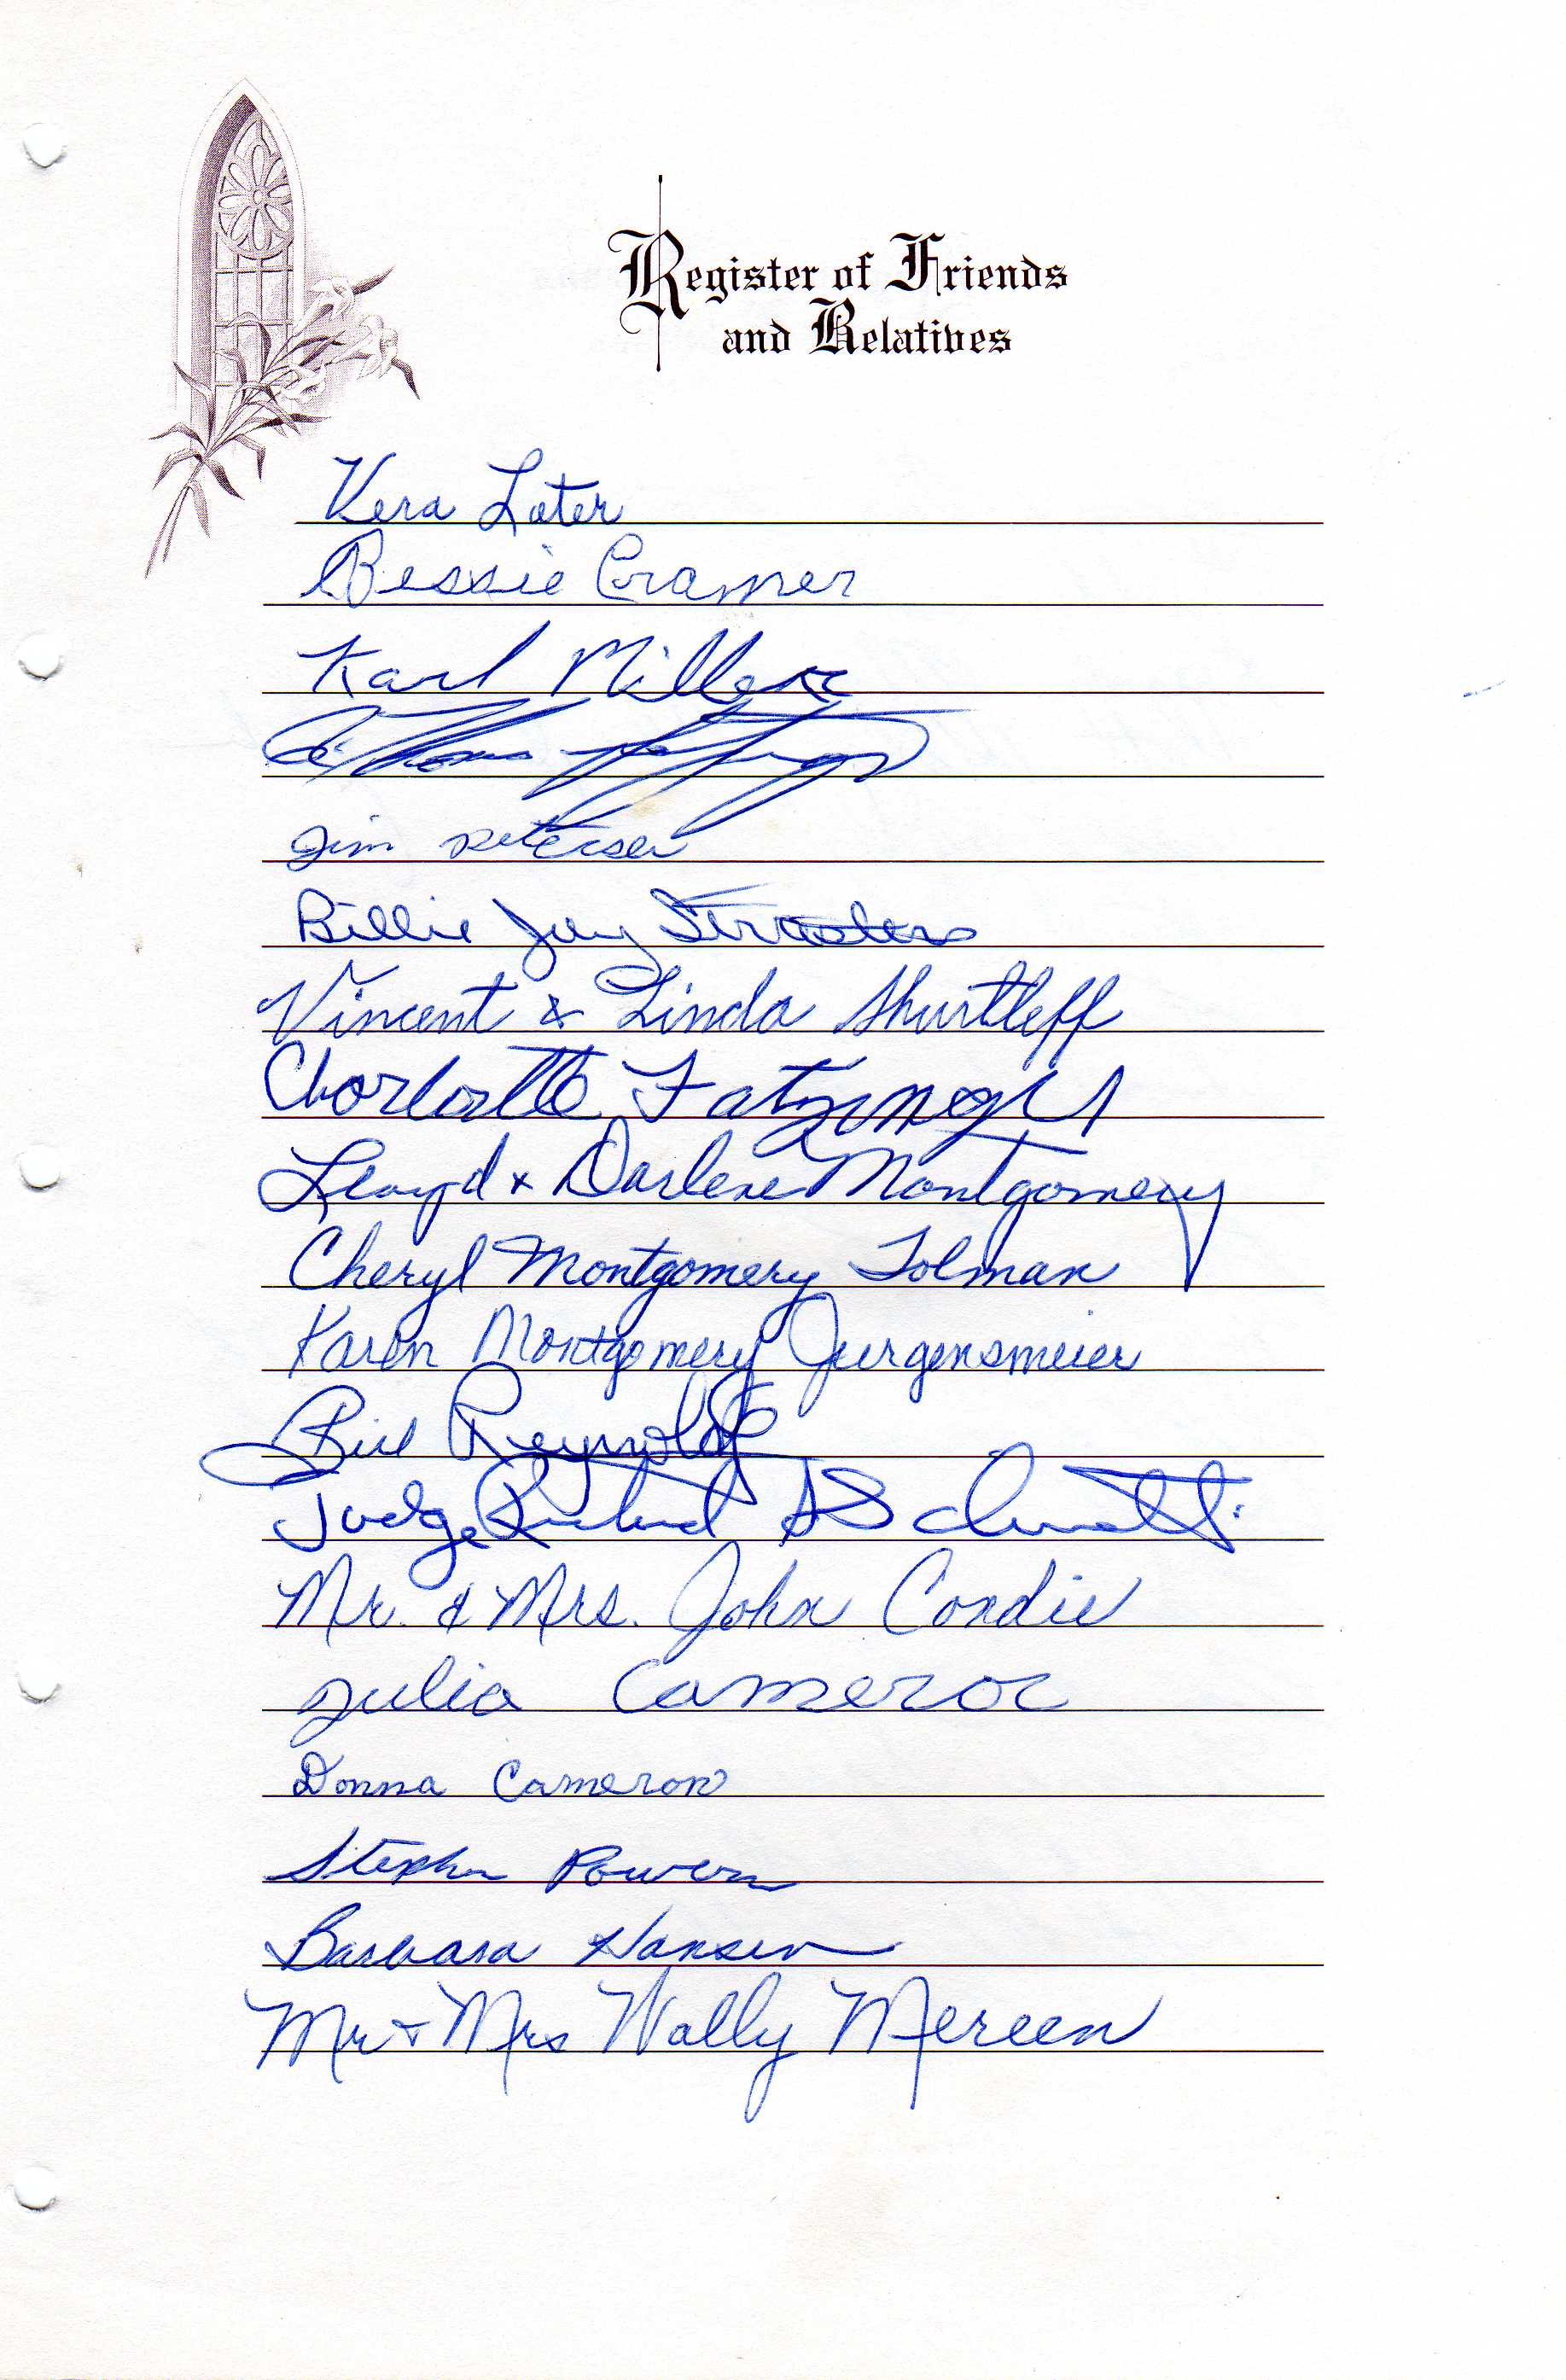 Register of Friends
and Relatives
Vera Later
Bessie Cramer
Karl Miller
Thomas
Jim Petersen
Billie Jay
Vincent & Linda Shurtleff
Charlotte Fatzinger
Lloyd & Darlene Montgomery
Cheryl Montgomery Tolman
Karen Montgomery Jurgensmeier
Bill Reynolds
Judge Richard Schmidt
Mr. & Mrs. John Condie
Julia Cameron
Donna Cameron
Stephen Powers
Barbara Hansen
Mr & Mrs Wally Mereen